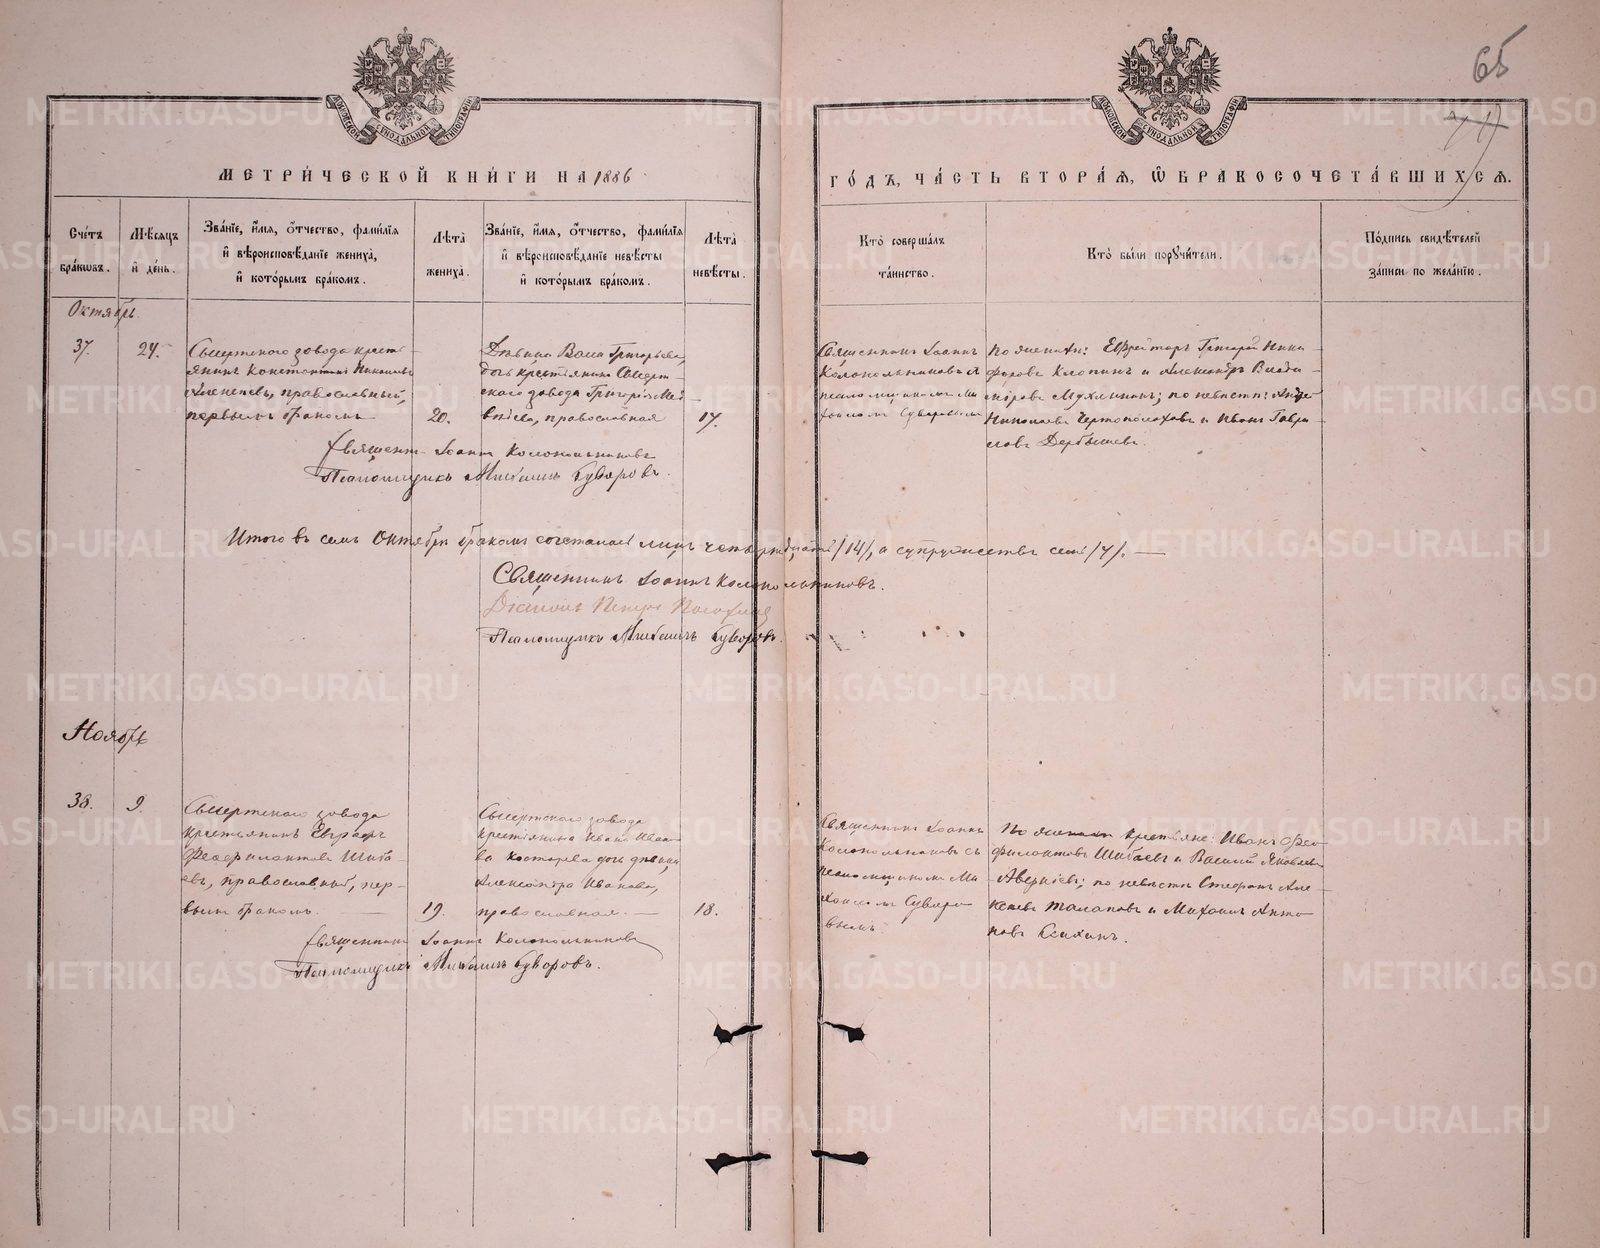 65
МОСКОВСКОЙ СѴНОДАЛЬНОЙ ТИПОГРАФІИ
МОСКОВСКОЙ СѴНОДАЛЬНОЙ ТИПОГРАФІИ
МЕТРИ́ЧЕСКОЙ КНИ́ГИ НА 1886
ГО́ДЪ, ЧА́СТЬ ВТОРА́Я, Ѡ БРАКОСОЧЕТА́ВШИХСЯ.
Сче́тъ бра́кѡвъ.
Мѣ́сяцъ и҆ де́нь.
Зва́нїе, и҆́мя, ѻ҆́тчество, фами́лїя и҆ вѣроисповѣ́данїе жениха̀, и҆ кото́рымъ бра́комъ.
Лѣ́та жениха.
Зва́нїе, и҆́мя, ѻ҆́тчество, фами́лїя и҆ вѣроисповѣ́данїе невѣ́сты и҆ кото́рымъ бра́комъ.
Лѣ́та невѣ́сты.
Кто̀ соверша́лъ та́инство.
Кто̀ бы́ли порꙋчи́тели.
По́дпись свидѣ́телей за́писи по жела́нїю.
Октябрь.
37.
24.
Сысертскаго завода кресть-
янинъ Константинъ Николаевъ
православный,
первымъ бракомъ
20.
Дѣвица Васса Григорьева,
дочь крестьянина Сысерт-
скаго завода Григорія Мед-
вѣдева, православная
17.
Священникъ Іоаннъ
Колокольниковъ съ
псаломщикомъ Ми-
хаиломъ Суворовымъ
По женихѣ: Ефрейторъ Григорій Ники-
форовъ Клопинъ и Александръ Влади-
міровъ Мухлынинъ; по невѣстѣ: Андрей
Николаевъ Чертополоховъ и Иванъ Гаври-
ловъ Дербышевъ.
Священникъ Іоаннъ Колокольниковъ
Псаломщикъ Михаилъ Суворовъ.
Итого въ семъ Октябрѣ бракомъ сочеталось лицъ четырнадцать /14/, а супружествъ семь /7/. —
Священникъ Іоаннъ Колокольниковъ.
Діаконъ Петръ
Псаломщикъ Михаилъ Суворовъ.
Ноябрь
38.
9.
Сысертскаго завода
крестьянинъ Евграфъ
Феофилактовъ Шиба-
евъ, православный, пер-
вымъ бракомъ. —
19.
Сысертскаго завода
крестьянина Ивана Ивано-
ва Костарева дочь дѣвица
Александра Иванова,
православная. —
18.
Священникъ Іоаннъ
Колокольниковъ съ
псаломщикомъ Ми-
хаиломъ Суворо-
вымъ
По женихѣ крестьяне: Иванъ Фео-
филактовъ Шибаевъ и Василій Яковлевъ
Аверкіевъ; по невѣстѣ Стефанъ Але-
ксѣевъ Талаповъ и Михаилъ Анто-
новъ
Священникъ Іоаннъ Колокольниковъ
Псаломщикъ Михаилъ Суворовъ.
METRIKI.GASO-URAL.RU